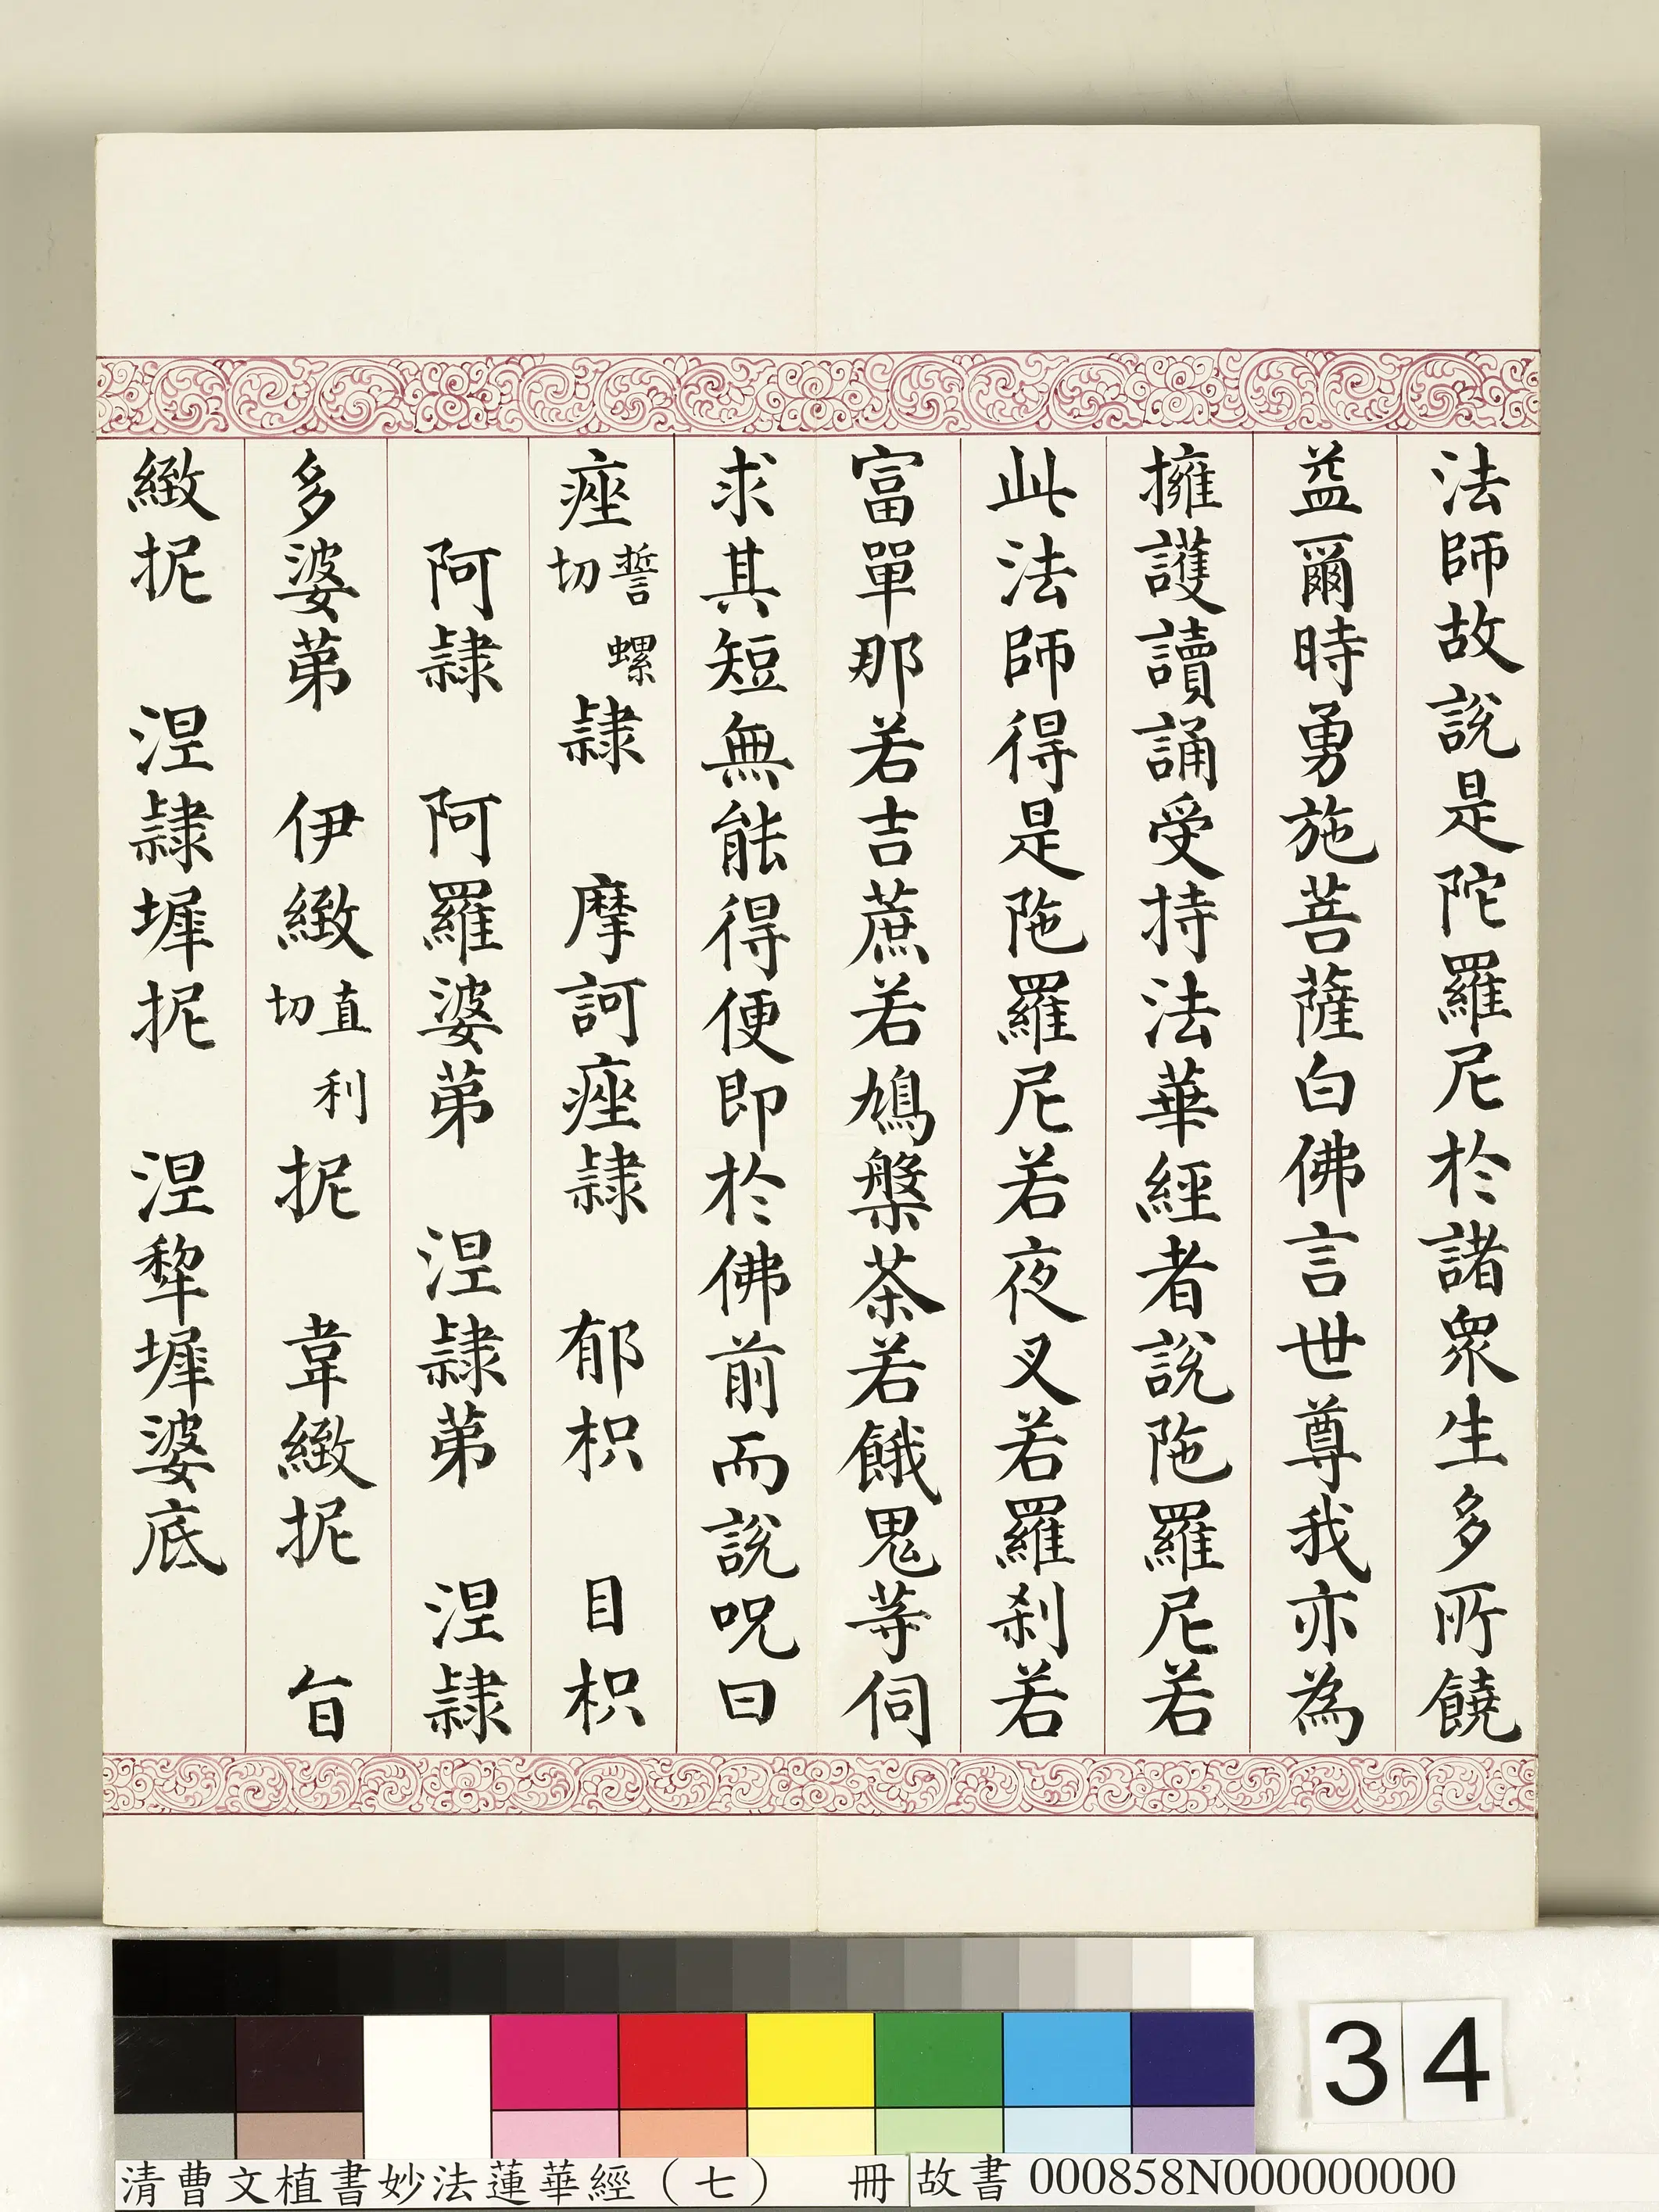 法師故說是陀羅尼於諸衆生多所饒
益爾時勇施菩薩白佛言世尊我亦為
擁護讀誦受持法華經者說陁羅尼若
此法師得是陁羅尼若夜叉若羅剎若
富單那若吉蔗若鳩槃茶若餓鬼等伺
求其短無能得便即於佛前而說呪曰
痤誓螺切隷 摩訶痤隷 郁枳 目枳
阿隷 阿羅婆第 涅隷第 涅隷
多婆第 伊緻直利切抳 韋緻抳 旨
緻抳 涅隷墀抳 涅犂墀婆底
34
清曹文植書妙法蓮華經（七） 冊 故書 000858N000000000